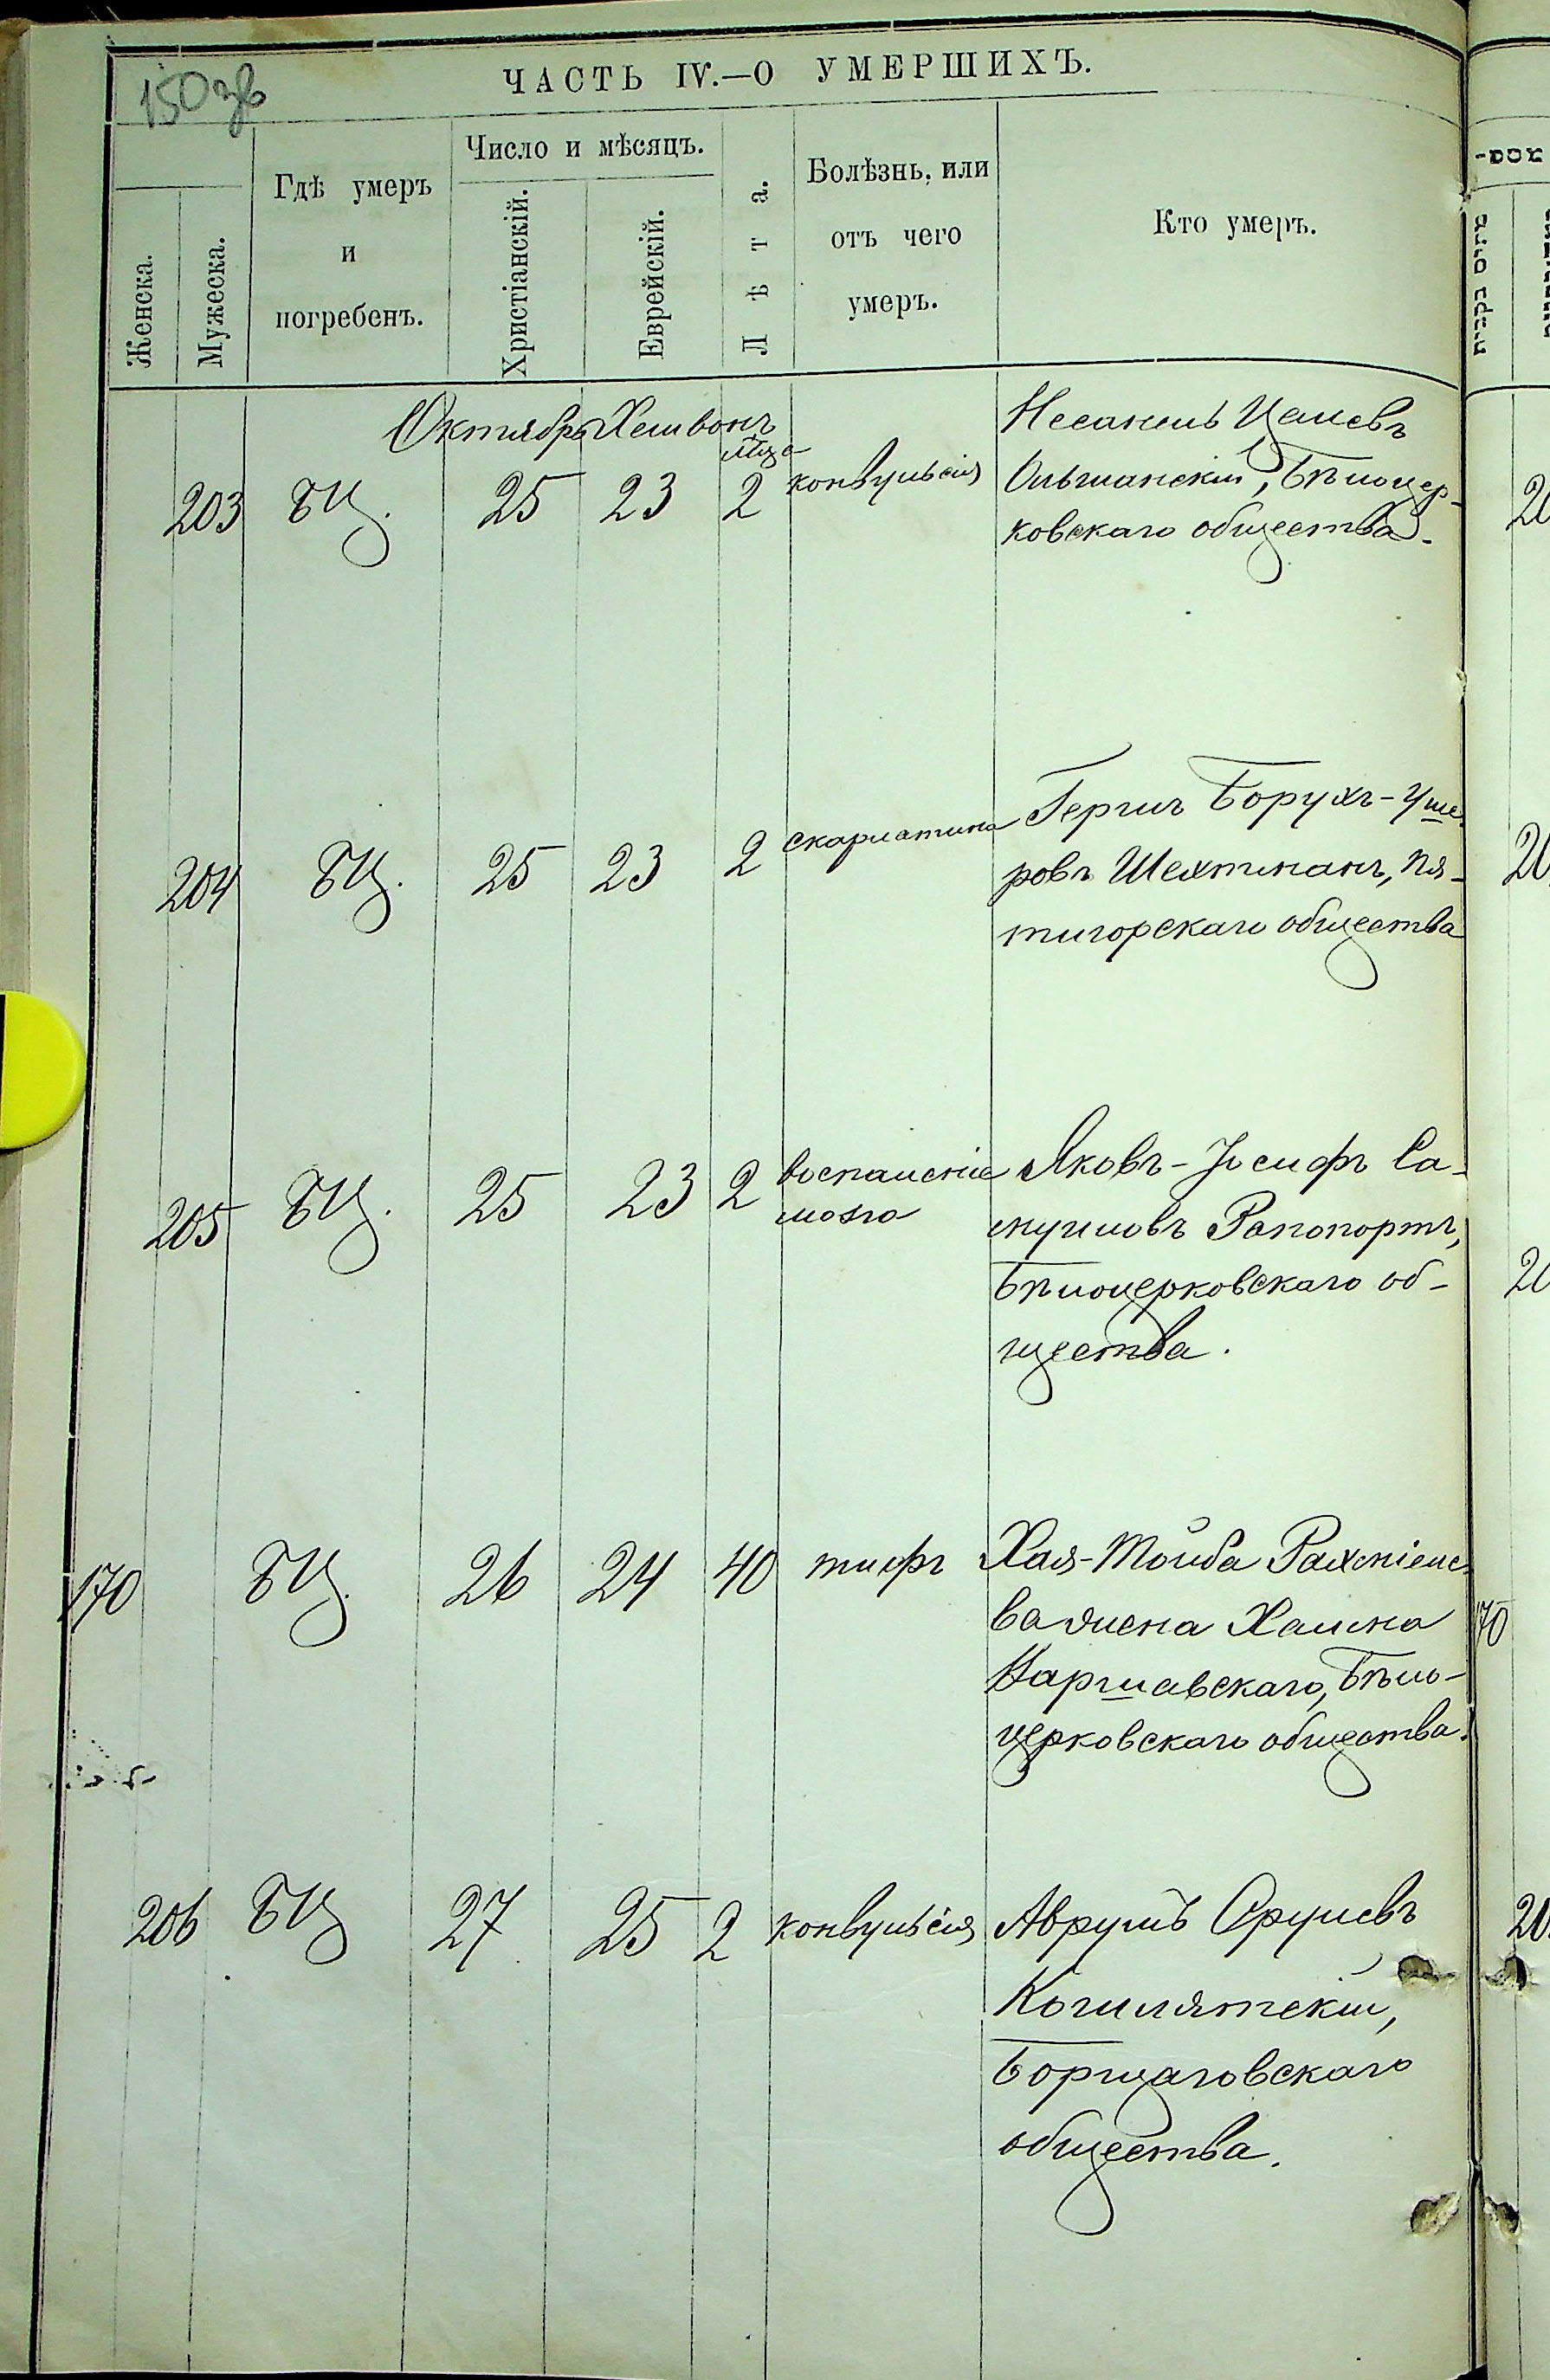 150 зв
ЧАСТЬ IV.—О УМЕРШИХЪ.
Женска.
Мужеска.
Гдѣ умеръ
и
погребенъ.
Число и мѣсяцъ.
Христіанскій.
Еврейскій.
Лѣта.
Болѣзнь, или
отъ чего
умеръ.
Кто умеръ.
Октябрь Хешвонъ
203 БЦ. 25 23 2 мѣс. конвульсія
Несанель Цалевъ
Ольшанскій, Бѣлоцер-
ковскаго общества.
204 БЦ. 25 23 2 скарлатина
Гершъ Борухъ-Уше-
ровъ Шехтманъ, Пя-
тигорскаго общества
205 БЦ. 25 23 2 воспаленіе
мозга
Яковъ-Іосифъ Са-
муиловъ Рапопортъ,
Бѣлоцерковскаго об-
щества.
170 БЦ. 26 24 40 тифъ
Хая-Тойба Рахміеле-
ва жена Хаима
Варшавскаго, Бѣло-
церковскаго общества.
206 БЦ 27 25 2 конвульсія
Аврумъ Срулевъ
Борщаговскаго
общества.